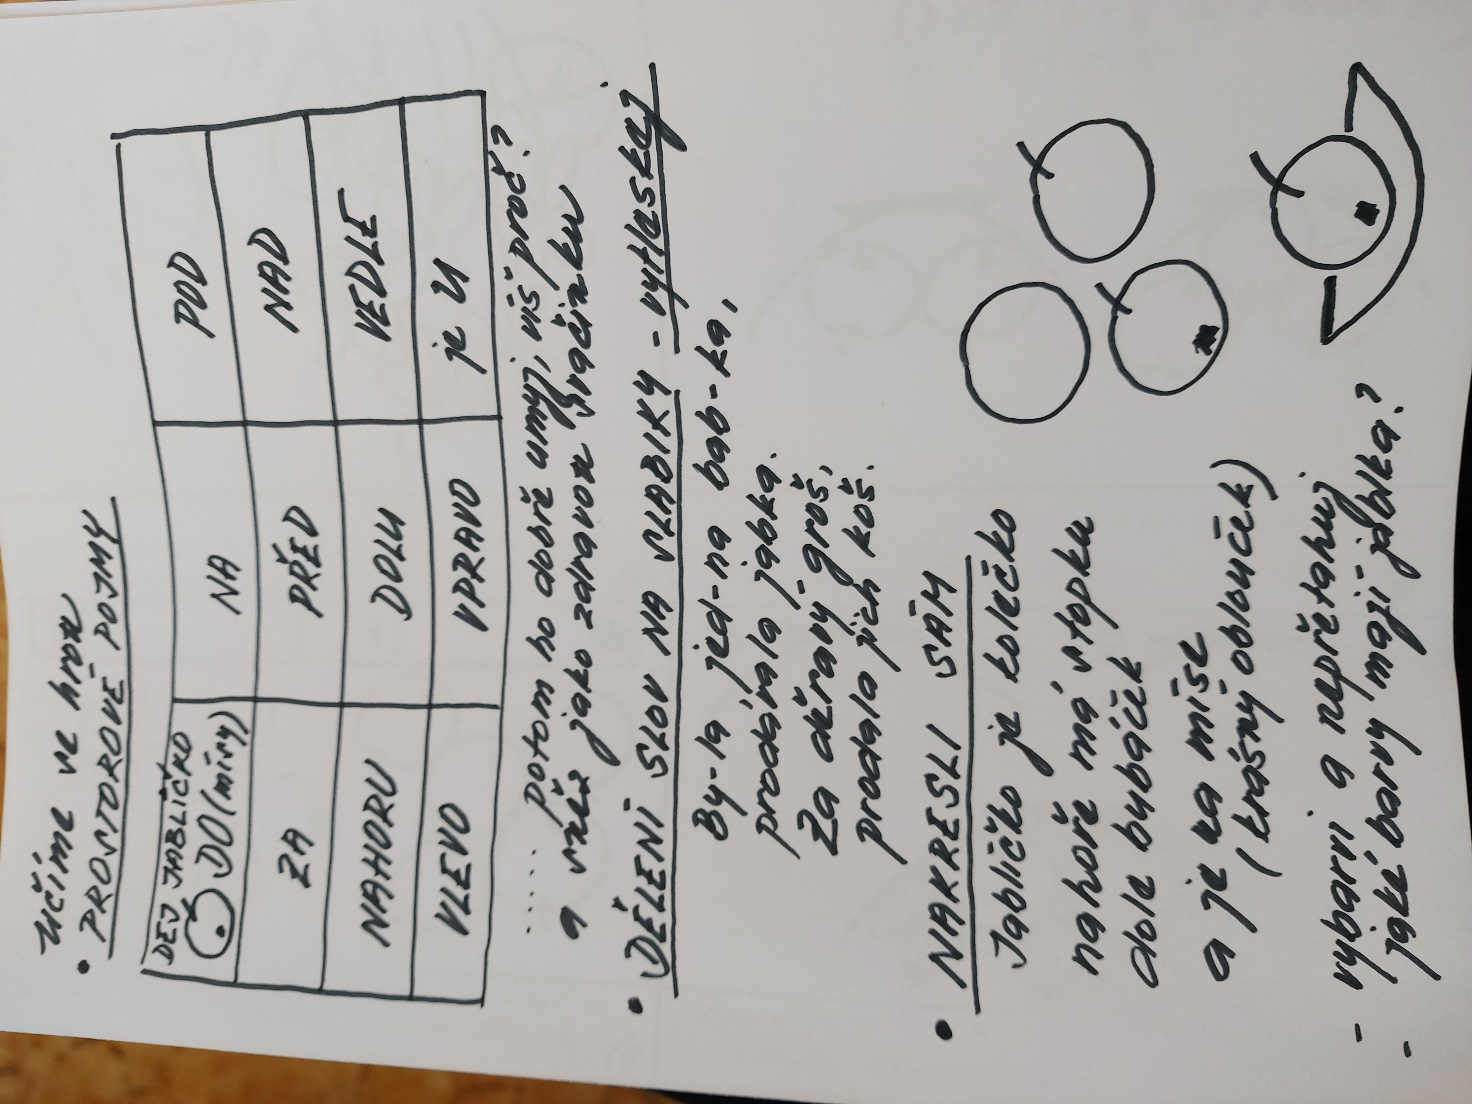 Učíme ve hrou
• PROSTOROVÉ POJMY
DEJ JABLIČKO
DO (mísy) NA POD
ZA PŘED NAD
NAHORU DOLU VEDLE
VLEVO VPRAVO je U
..... potom ho dobře umyj, víš proč?
a sněz jako zdravou svačinku
• DĚLENÍ SLOV NA SLABIKY - vytleskej
By-la jed-na bab-ka,
prodávala jabka.
Za děravý groš,
prodala jich koš.
• NAKRESLI SÁM
Jablíčko je kolečko
nahoře má stopku
dole bubáček
a je na míse
(krásný oblouček)
- vybarvi a nepřetahuj
- jaké barvy mají jablka?